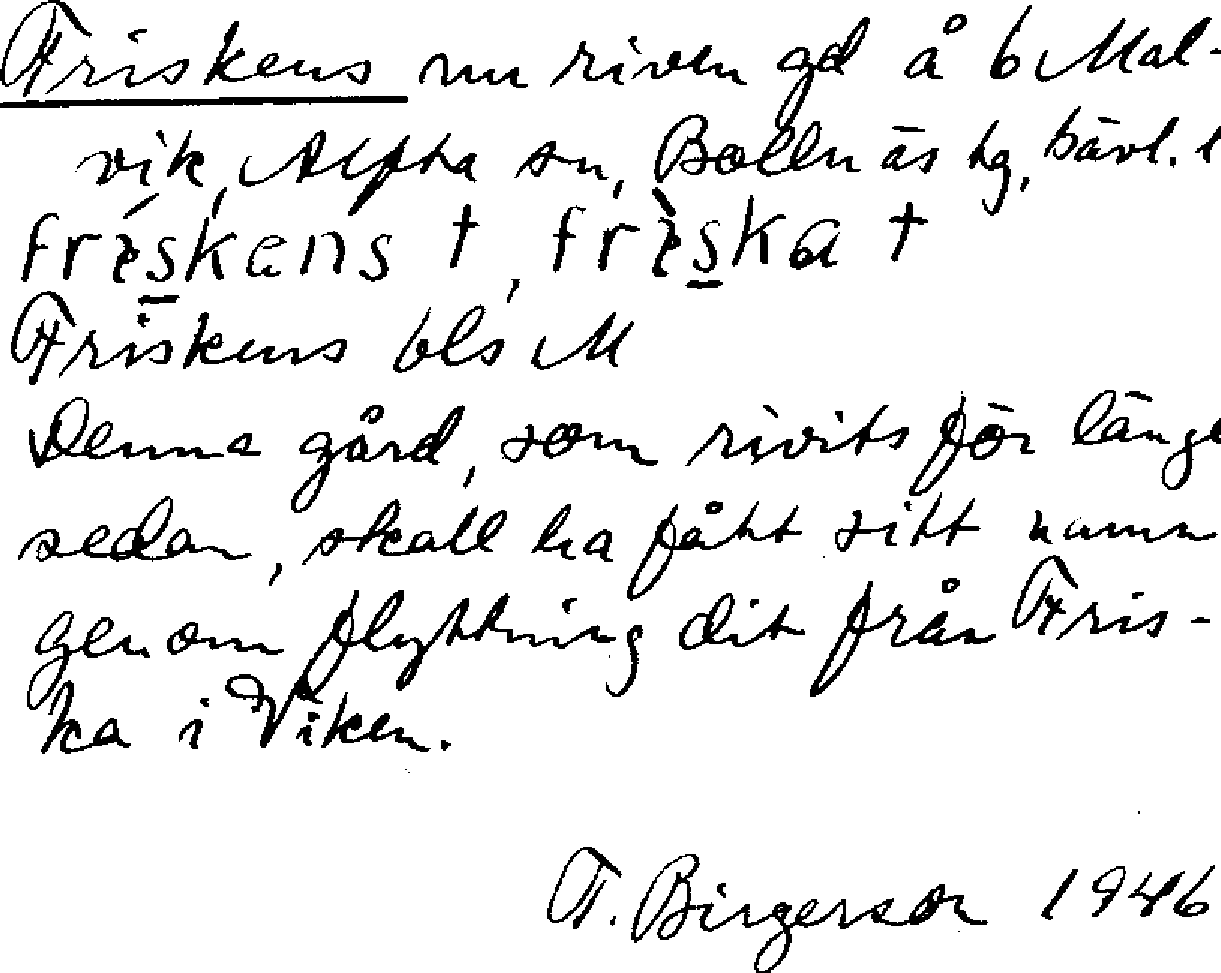 Friskens nu riven gd å 6 Mal-
vik, Alfta sn, Bollnäs tg, Gävl. l
friskens †, friska †
Friskens bls M
Denna gård, som rivits för länge
sedan, skall ha fått sitt namn
genom flyttning dit från Fris-
ka i Viken.
F. Birgerson 1946